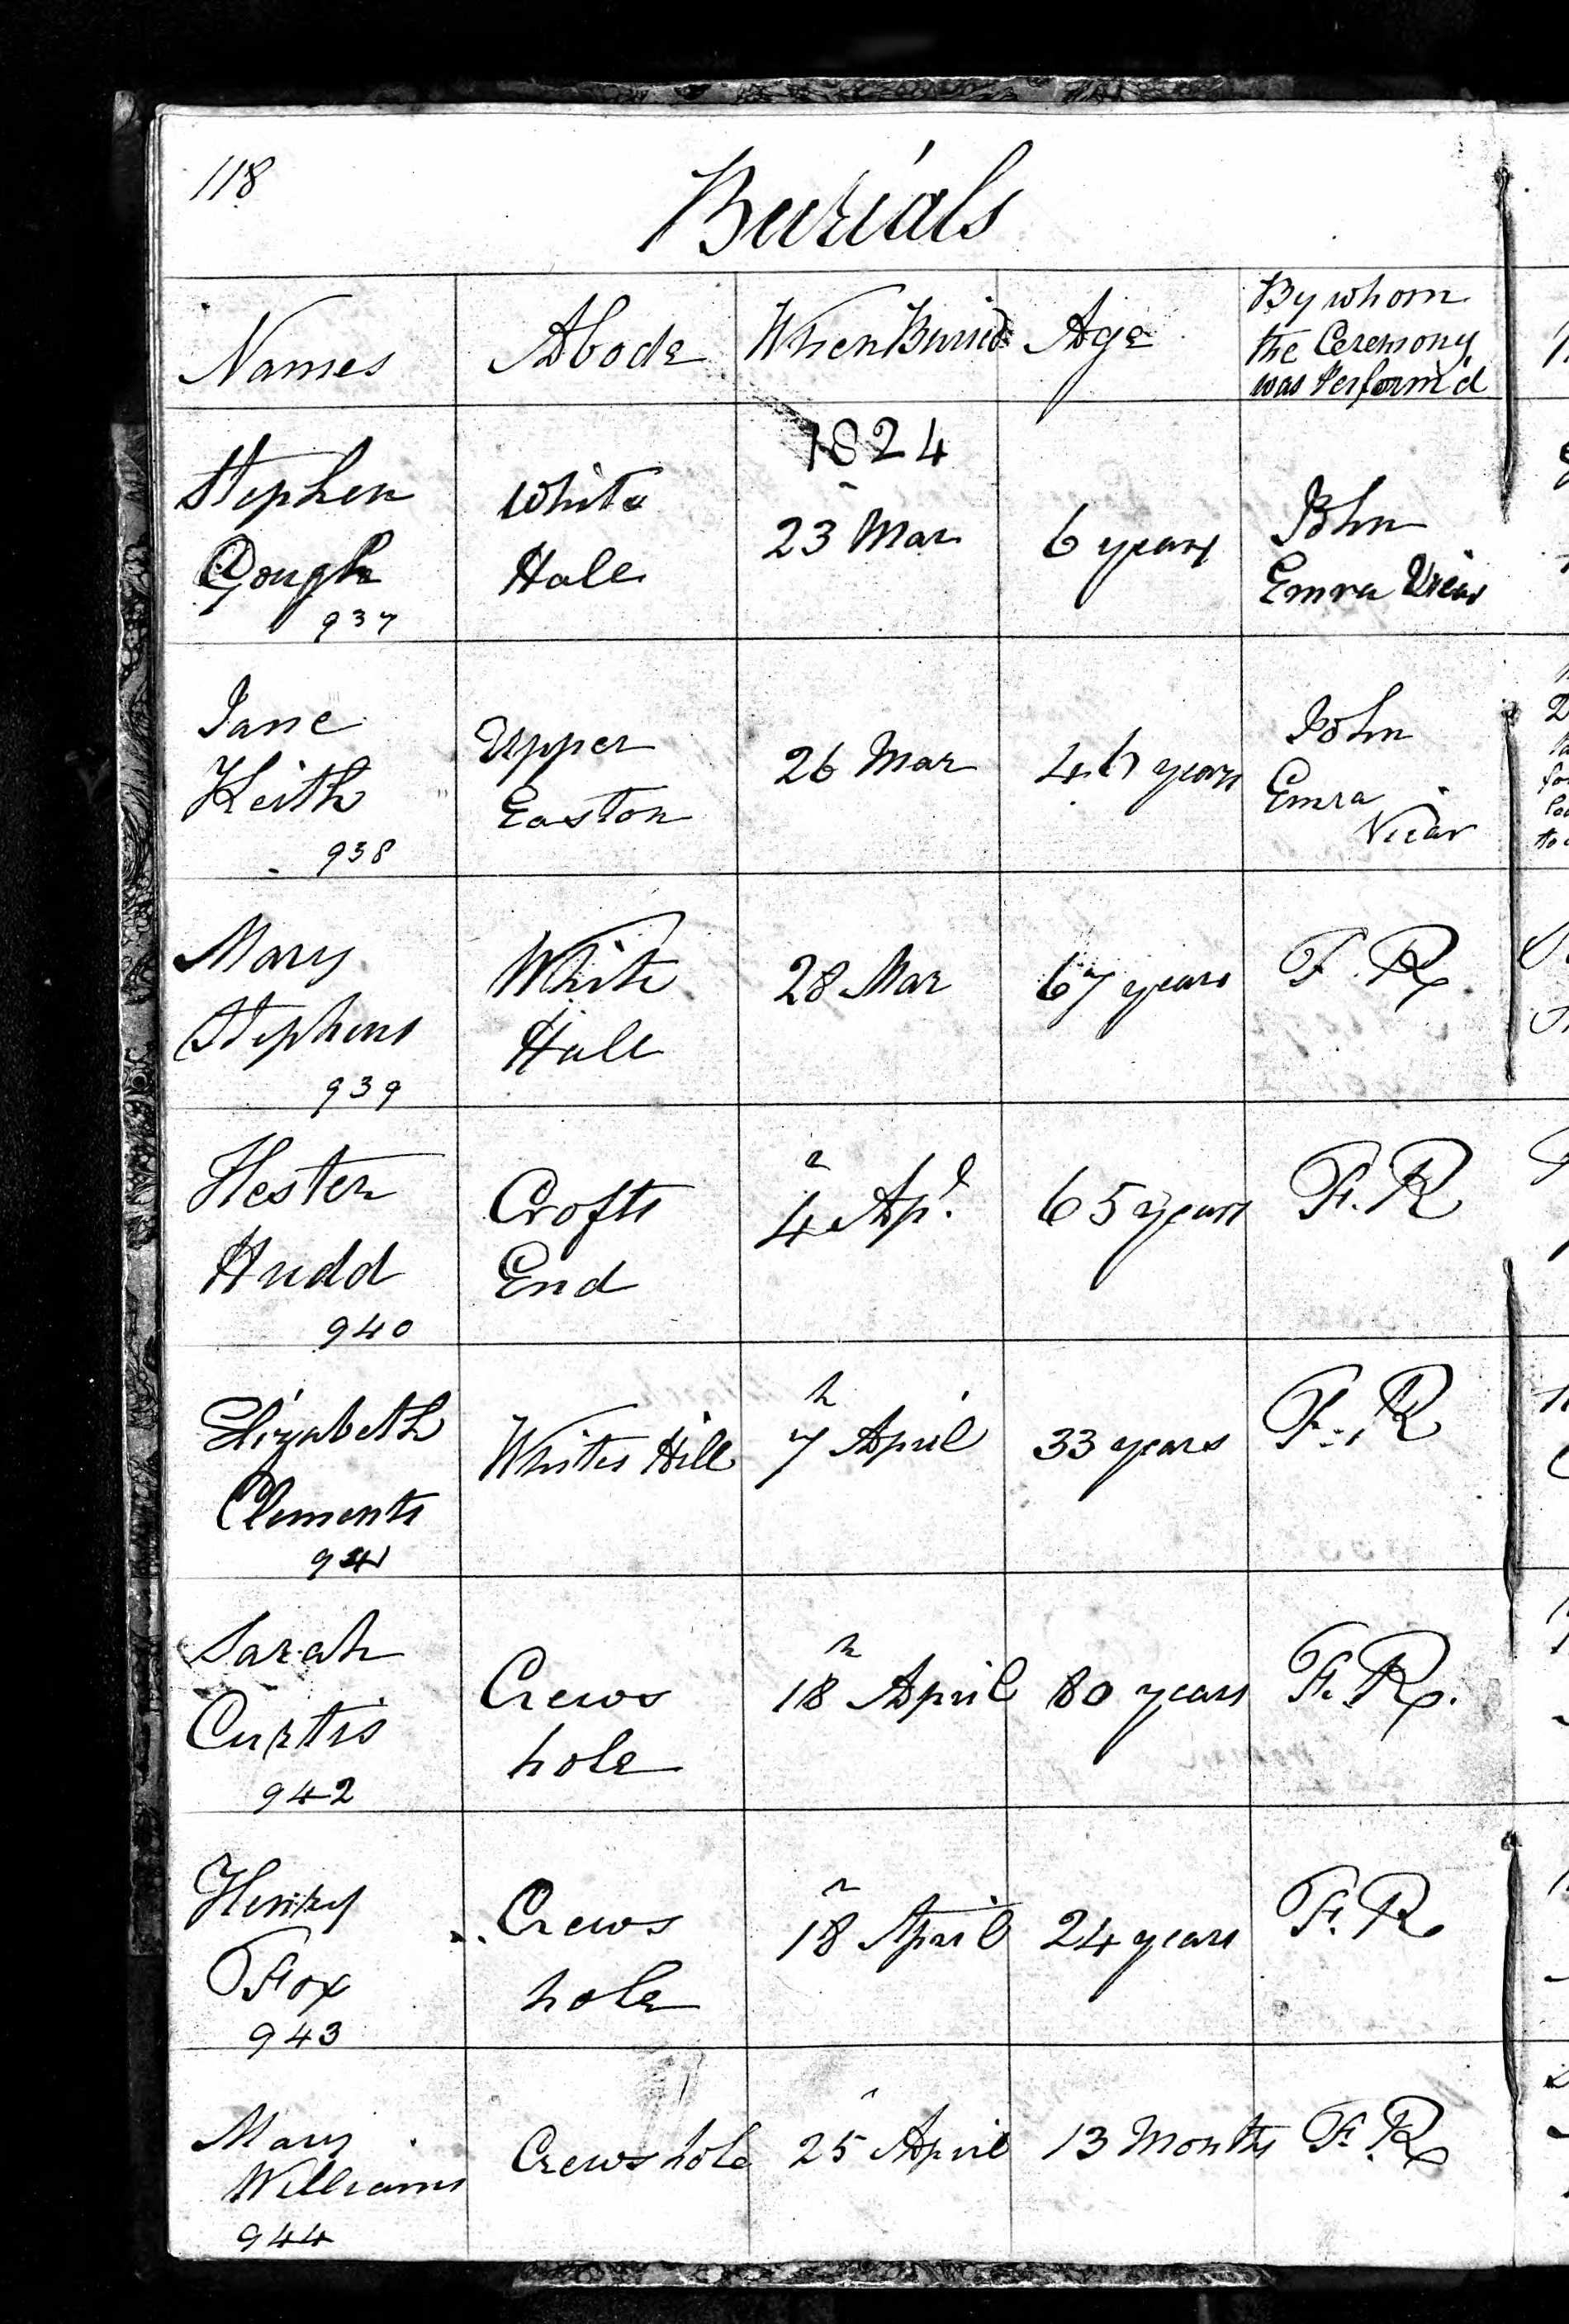 118
Burials
Names Abode When Buried Age By whom
the Ceremony
was Perform'd
1824
Stephen White 23 Mar 6 years John
Gough Hall Emra Vicar
937
Jane Upper 26 Mar 46 years John
Keith Easton Emra
Vicar
938
Mary White 28 Mar 67 years F. R.
Stephens Hall
939
Hester Crofts 4 Apl. 65 years F. R
Hudd End
940
Elizabeth Whites Hill 7 April 33 years F. R
Clements
941
Sarah Crews 18 April 80 years F. R.
Curtis hole
942
Henry Crews 18 April 24 years F. R
Fox hole
943
Mary Crews hole 25 April 13 Months F. R
Williams
944